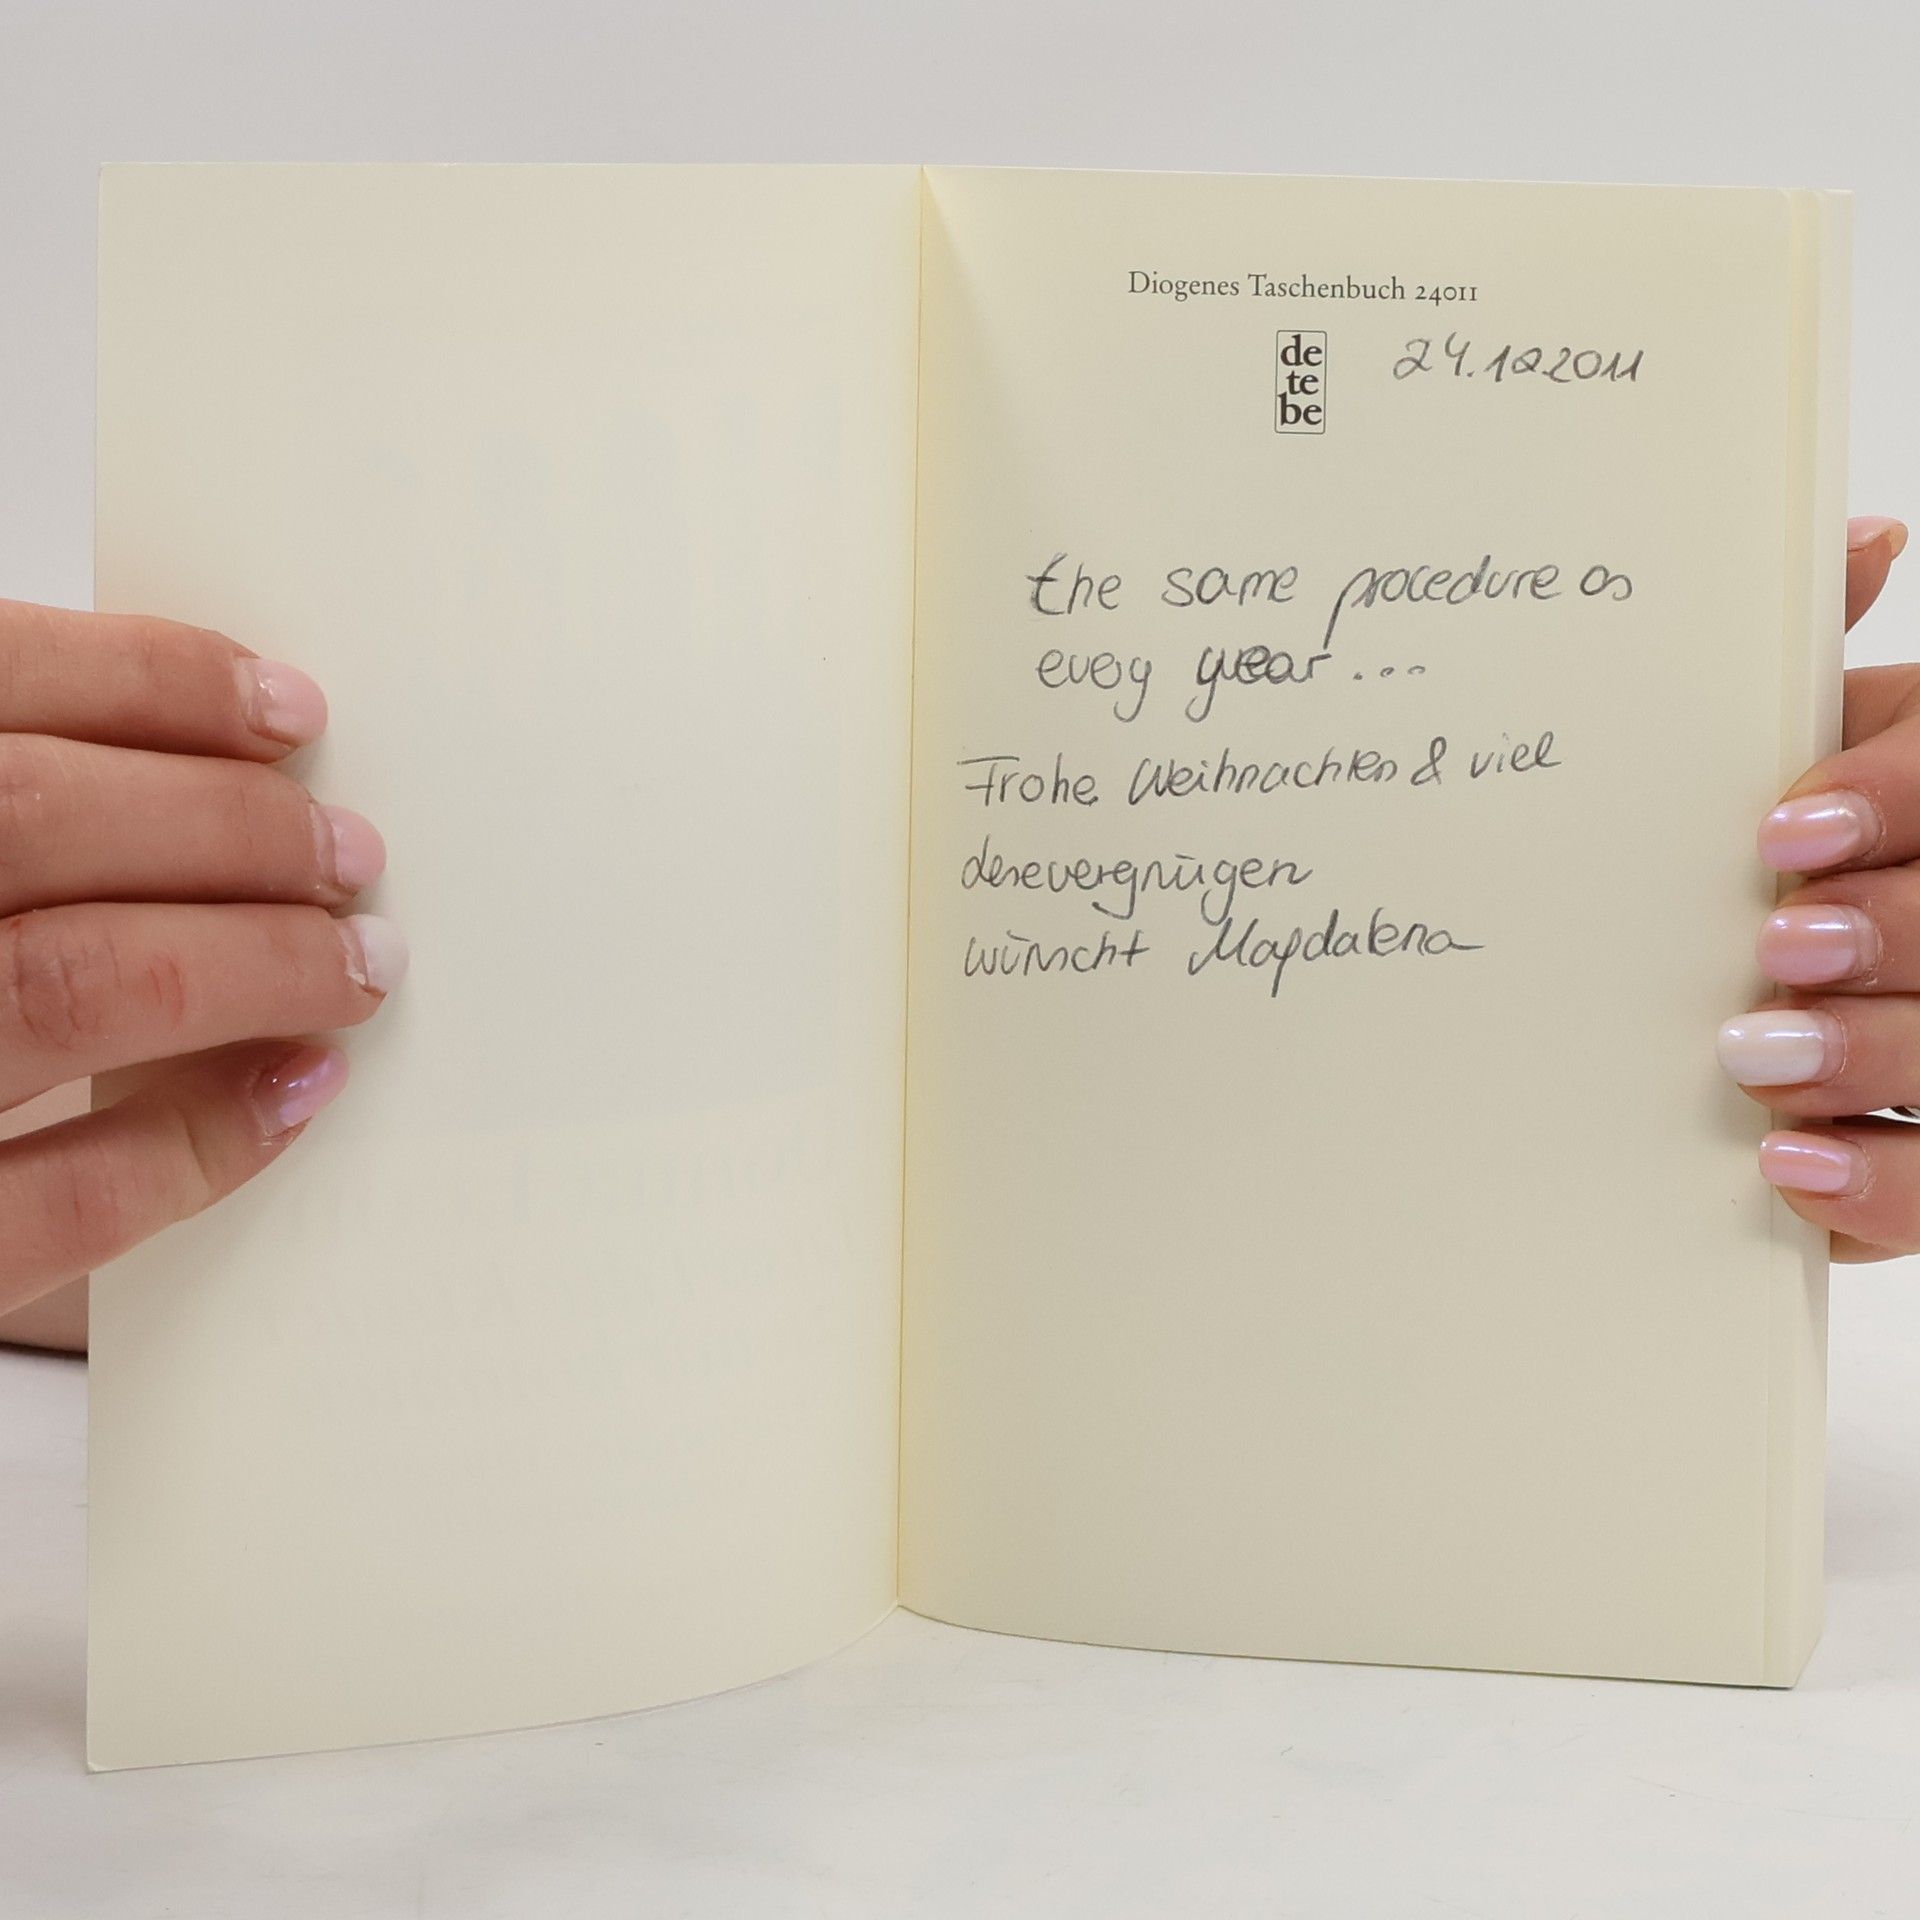 Diogenes Taschenbuch 24011
de
te
be
24.12.2011
the same procedure as
every year...
Frohe Weihnachten & viel
Lesevergnügen
wünscht Magdalena